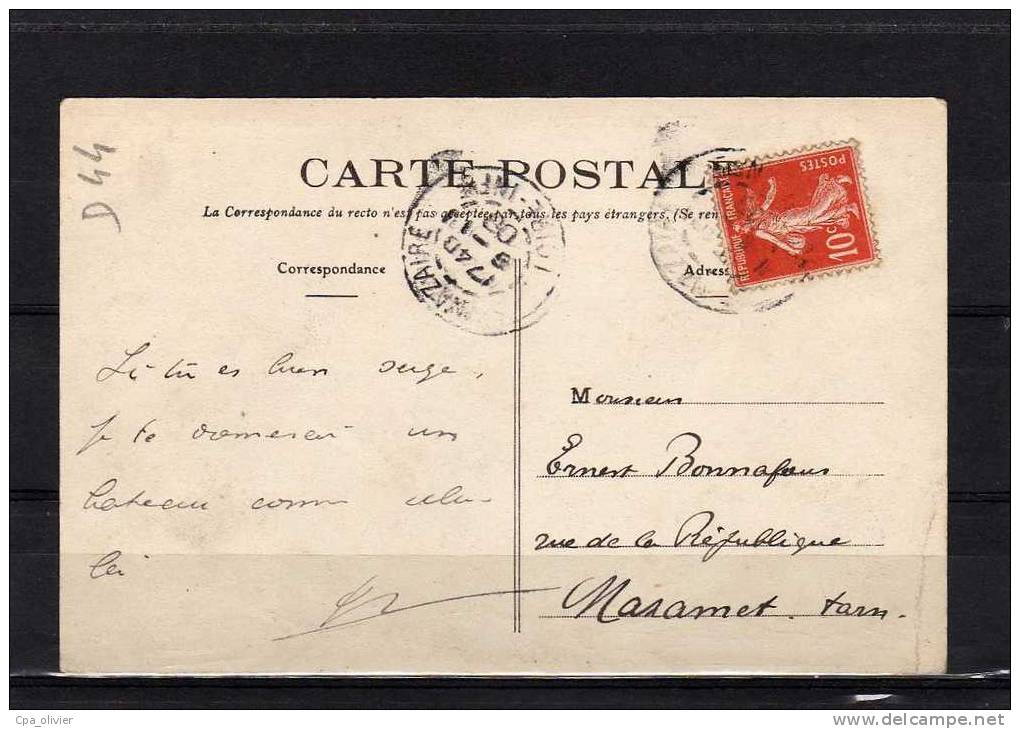 D 44
CARTE POSTALE
La Correspondance du recto n'est pas acceptée par tous les pays étrangers. (Se ren
Correspondance
Adress
POSTES
10 c
REPUBLIQUE FRANCAISE
NAZAIRE
LOIRE-INFRE
1740
Si tu es bien sage,
je te donnerai un
bateau comme celui-
là
Monsieur
Ernest Bonnafous
rue de la République
Mazamet. tarn.
Cpa_olivier
www.delcampe.net